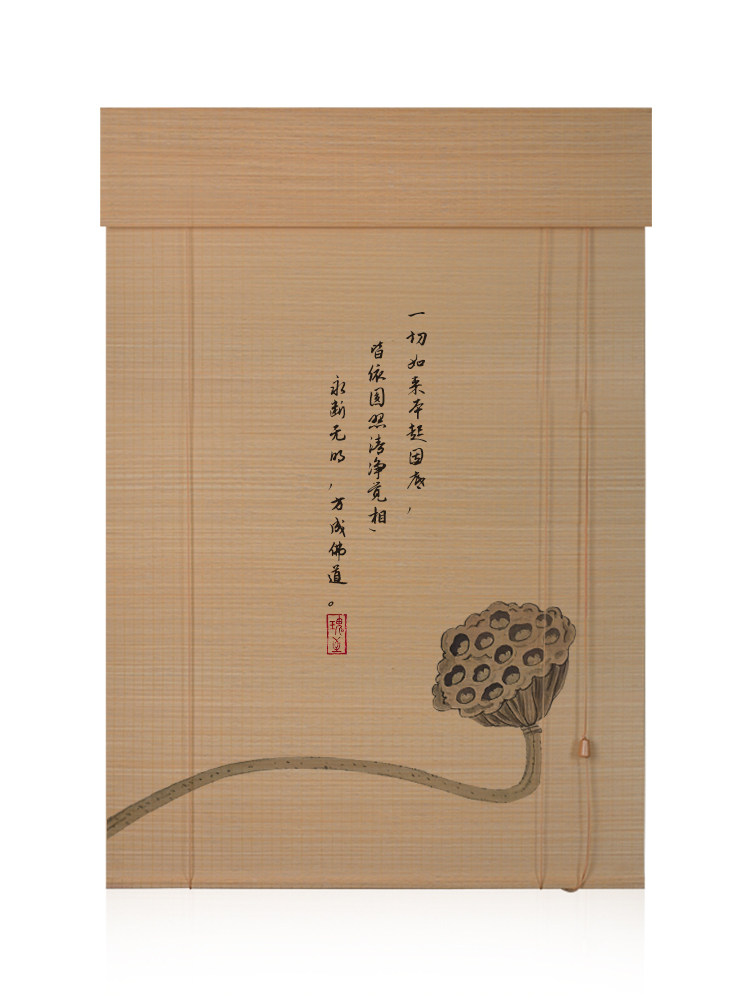 一切如来本起因，
皆依圆照清净觉相，
永断无明，方成佛道。